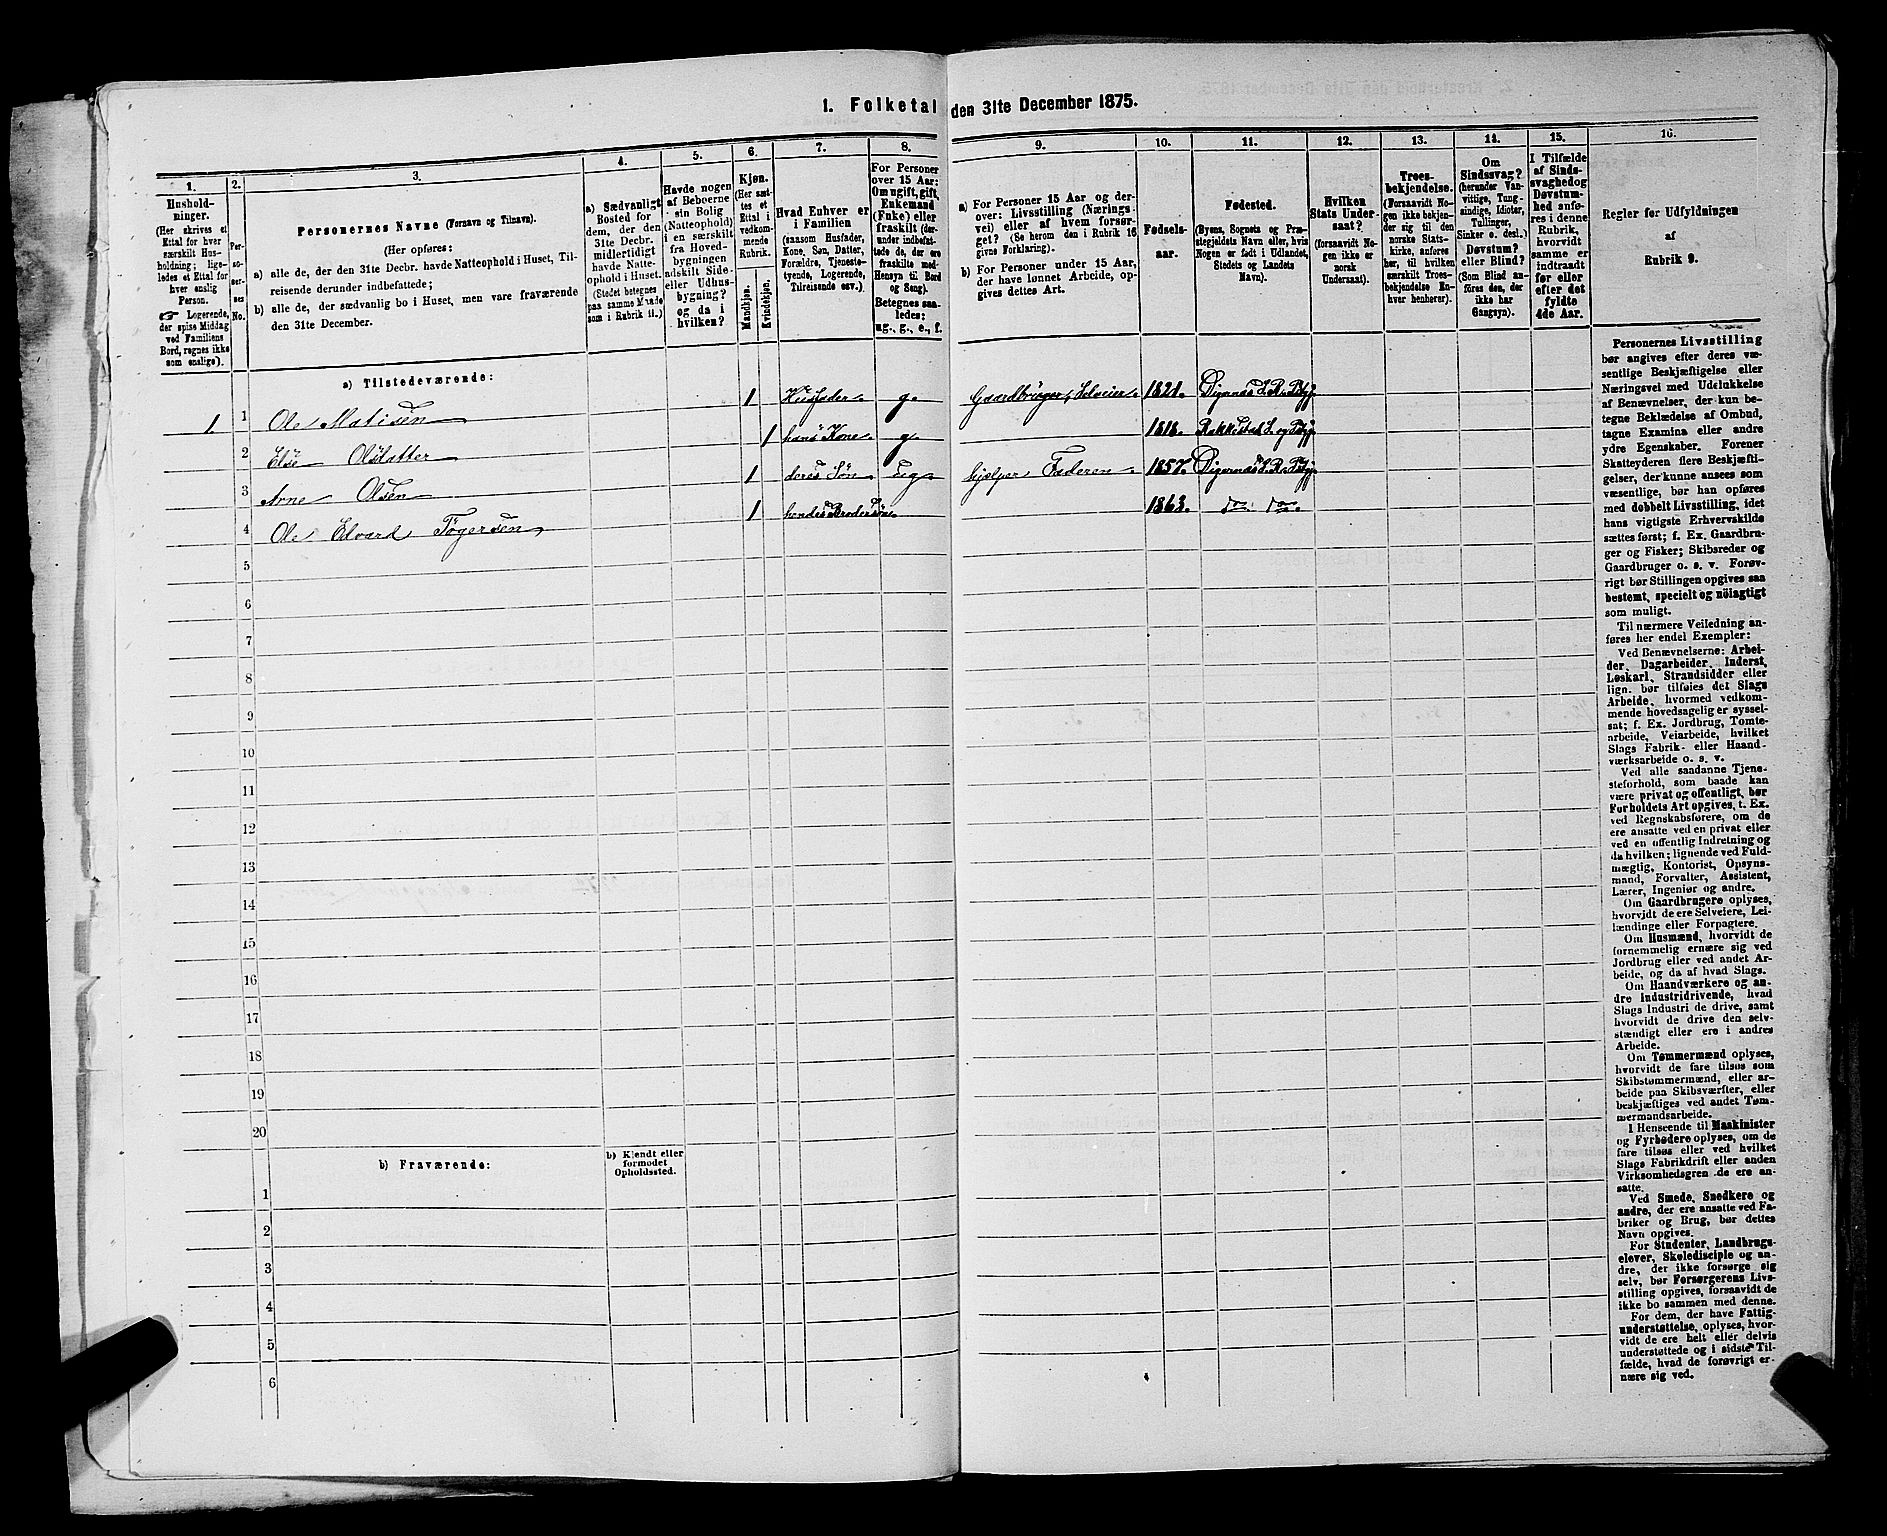 1. Folketal den 31te December 1875.
1.
2.
3.
4.
5.
6.
7.
8.
9.
10.
11.
12.
13.
14.
15.
16.
Husholdninger.
(Her skrives et
Ettal for hver
særskilt Husholdning;
ligeledes et Ettal for
hver enslig
Person.
☞ Logerende,
der spise Middag
ved Familiens
Bord, regnes ikke
som enslige).
Personernes No.
Personernes Navne (Fornavn og Tilnavn).
(Her opføres:
a) alle de, der den 31te Decbr. havde Natteophold i Huset, Tilreisende derunder indbefattede;
b) alle de, der sædvanlig bo i Huset, men vare fraværende
den 31te December.
a) Sædvanligt
Bosted for
dem, der den
31te Decbr.
midlertidigt
havde Natteophold i Huset.
(Stedet betegnes
paa samme Maade
som i Rubrik 11.)
Havde nogen
af Beboerne
sin Bolig
(Natteophold)
i en særskilt
fra Hovedbygningen
adskilt Side-
eller Udhusbygning?
og da i
hvilken?
Kjøn.
(Her sættes et
Ettal i
vedkommende
Rubrik.
Mandkjøn.
Kvindekjøn.
Hvad Enhver er
i Familien
(saasom Husfader,
Kone, Søn, Datter,
Forældre, Tjenestetyende, Logerende,
Tilreisende osv.)
For Personer
over 15 Aar:
Om ugift, gift,
Enkemand
(Enke) eller
fraskilt (derunder indbefattede de, der ere
fraskilte med
Hensyn til Bord
og Seng).
Betegnes saaledes:
ug., g., e., f.
a) For Personer 15 Aar og derover: Livsstilling (Næringsvei) eller af hvem forsørget? (Se herom den i Rubrik 16
givne Forklaring).
b) For Personer under 15 Aar,
der have lønnet Arbeide, opgives dettes Art.
Fødselsaar.
Fødested.
(Byens, Sognets og Præstegjeldets Navn eller, hvis
Nogen er født i Udlandet,
Stedets og Landets
Navn).
Hvilken
Stats Undersaat?
(forsaavidt Nogen ikke er
norsk
Undersaat).
Troesbekjendelse.
(Forsaavidt Nogen ikke bekjender sig til den
norske Statskirke, anføres
her, til hvilken
særskilt Troesbekjendelse Enhver henhører).
Om
Sindssvag?
(herunder Vanvittige, Tungsindige, Idioter,
Tullinger,
Sinker o. desl.)
Døvstum?
eller Blind?
(Som Blind anføres den, der
ikke har
Gangsyn).
I Tilfælde
af Sindssvaghed og
Døvstumhed anføres i denne
Rubrik,
hvorvidt
samme er
indtraadt
før eller
efter det
fyldte
4de Aar.
Regler for Udfyldningen
af
Rubrik 9.
a) Tilstedeværende:
1. 1 Ole Matisen 1 Husfader g. Gaardbruger, Selveier 1821.
2 Else Olsdatter 1 hans Kone g. 1818. Rakkestad S. og
3 Arne Olsen 1 deres Søn ug hjelper Faderen 1857.
4 Ole Edvard Tøgersen 1 hendes Brodersøn 1863. do do
5
6
7
8
9
10
11
12
13
14
15
16
17
18
19
20
b) Fraværende:
b) Kjendt eller
formodet
Opholdssted.
1
2
3
4
5
6
Personernes Livsstilling
bør angives efter deres væsentlige Beskjæftigelse eller
Næringsvei med Udelukkelse
af Benævnelser, der kun betegne Beklædelse af Ombud,
tagne Examina eller andre
ydre Egenskaber. Forener
Skatteyderen flere Beskjæftigelser, der kunne ansees som
væsentlige, bør han opføres
med dobbelt Livsstilling, idet
hans vigtigste Erhvervskilde
sættes først; f. Ex. Gaardbruger og Fisker; Skibsreder og
Gaardbruger o. s. v. Forøvrigt bør Stillingen opgives saa
bestemt, specielt og nöiagtigt
som muligt.
Til nærmere Veiledning anføres her endel Exempler:
Ved Benævnelserne: Arbeider, Dagarbeider, Inderst,
Løskarl, Strandsidder eller
lign. bør tilføies det Slags
Arbeide, hvormed vedkommende hovedsagelig er sysselsat; f. Ex. Jordbrug, Tomtearbeide, Veiarbeide, hvilket
Slags Fabrik- eller Haandværksarbeide o. s. v.
Ved alle saadanne Tjenesteforhold, som baade kan
være privat og offentligt, bør
Forholdets Art opgives, t. Ex.
ved Regnskabsførere, om de
ere ansatte ved en privat eller
ved en offentlig Indretning og
da hvilken; lignende ved Fuldmægtig, Kontorist, Opsynsmand, Forvalter, Assistent,
Lærer, Ingeniør og andre.
Om Gaardbrugere oplyses,
hvorvjdt de ere Selveiere, Leilændinge eller Forpagtere.
Om Husmænd, hvorvidt de
fornemmelig ernære sig ved
Jordbrug eller ved andet Arbeide, og da af hvad Slags.
Om Haandværkere og andre Industridrivende, hvad
Slags Industri de drive, samt
hvorvidt de drive den selvstændigt eller ere i andres
Arbeide.
Om Tømmermænd oplyses,
hvorvidt de fare tilsøs som
Skibstømmermænd, eller arbeide paa Skibsværfter, eller
beskjæftiges ved andet Tømmermandsarbeide.
I Henseende til Maskinister
og Fyrbødere oplyses, om de
fare tilsøs eller ved hvilket
Slags Fabrikdrift eller anden
Virksomhedsgren de ere ansatte.
Ved Smede, Snedkere og
andre, der ere ansatte ved Fabriker og Brug, bør dettes
Navn opgives.
For Studenter, Landbrugselever, Skoledisciple og andre, der ikke forsørge sig
selv, bør Forsørgerens Livsstilling opgives, forsaavidt de
ikke bo sammen med denne.
For dem, der have Fattigunderstøttelse, oplyses, hvorvidt de ere helt eller delvis
understøttede og i sidste Tilfælde, hvad de forøvrigt ernære sig ved.